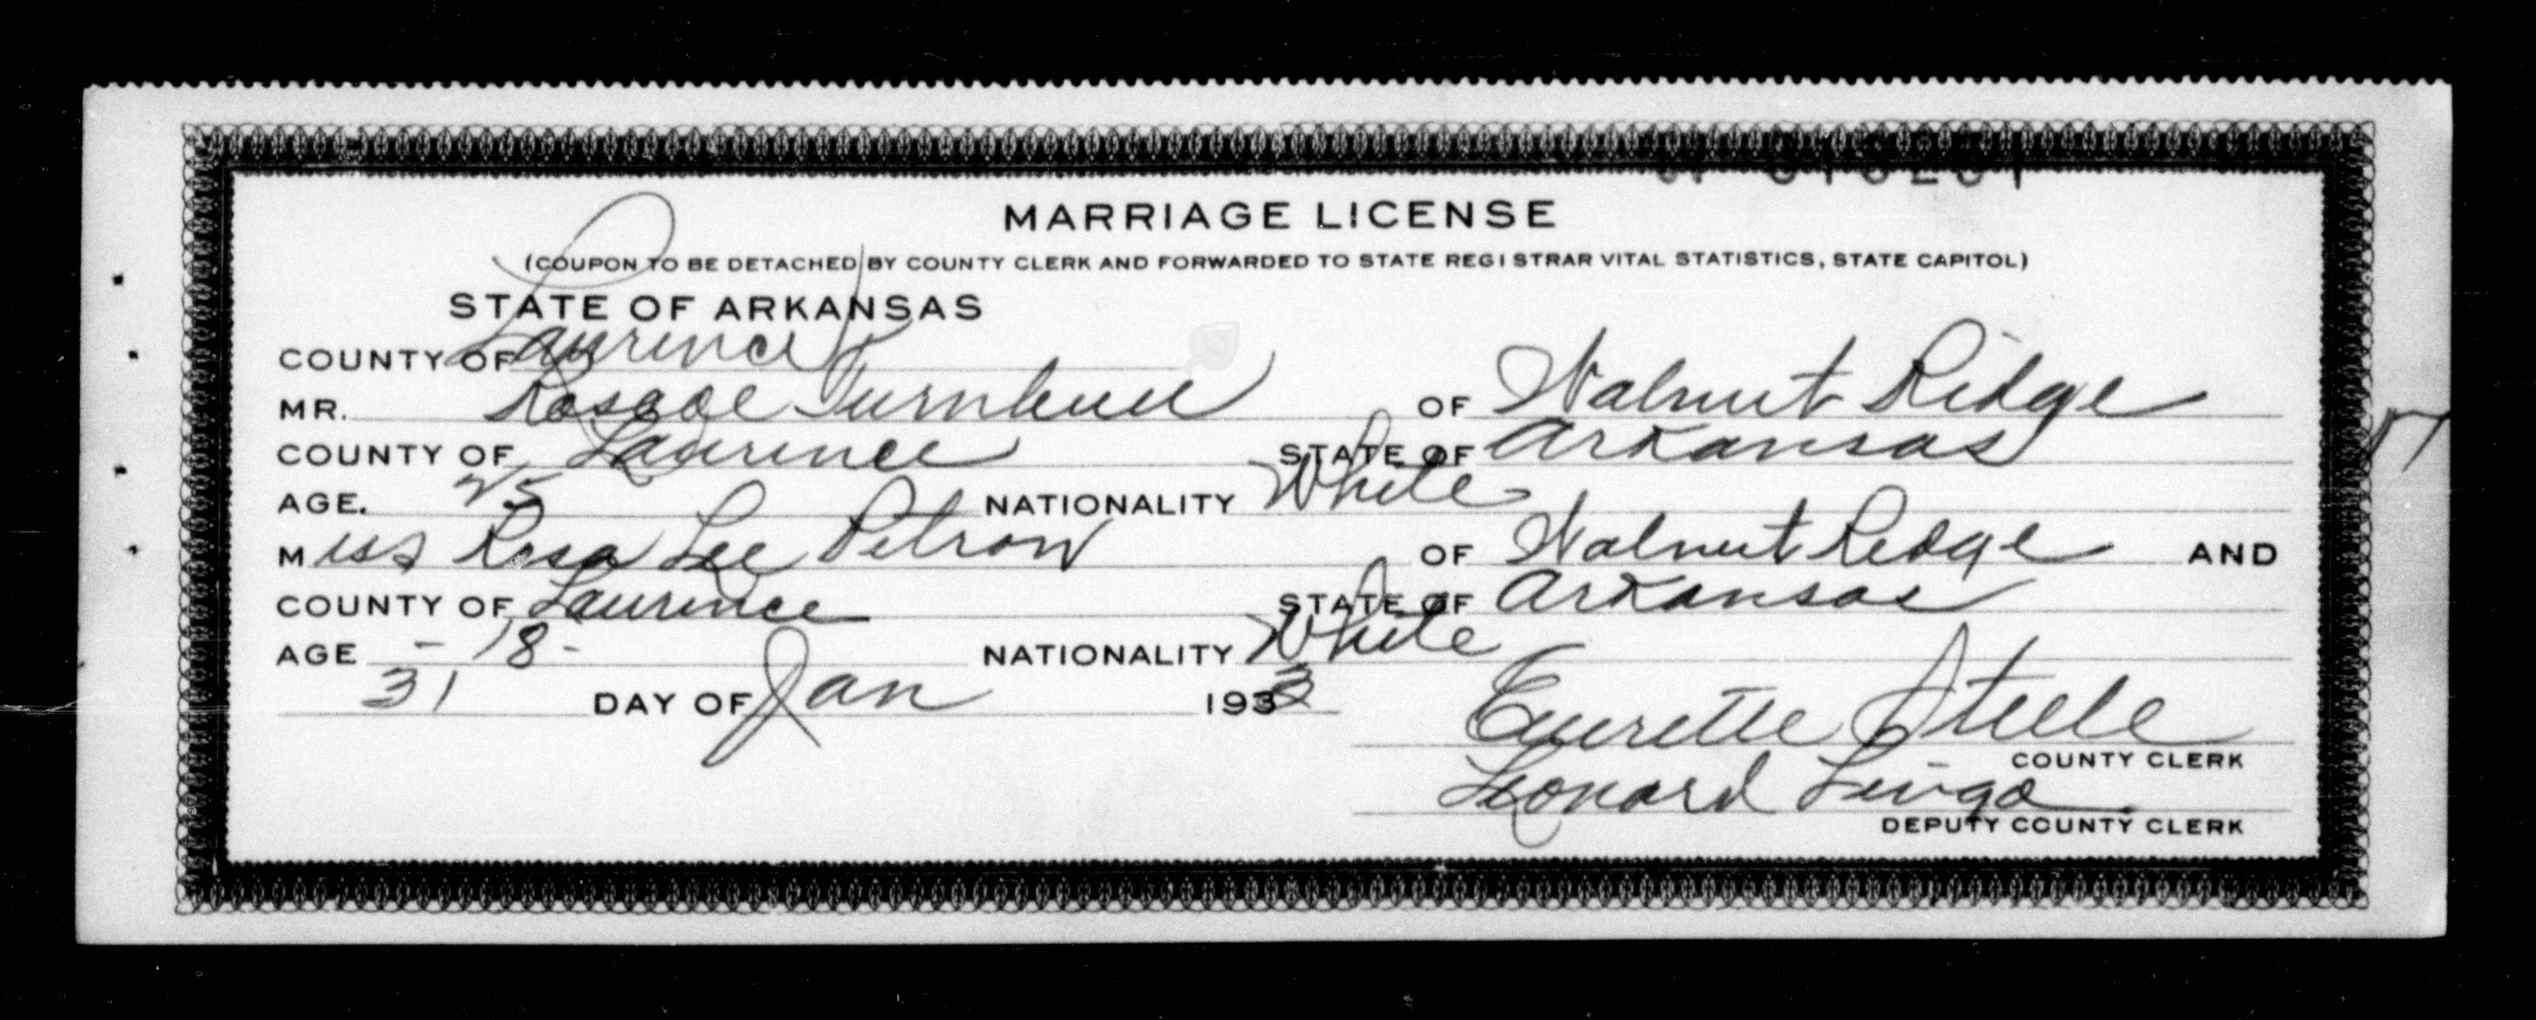 MARRIAGE LICENSE
(COUPON TO BE DETACHED BY COUNTY CLERK AND FORWARDED TO STATE REGISTRAR VITAL STATISTICS, STATE CAPITOL)
STATE OF ARKANSAS
COUNTY OF Laurence
MR. Roscoe Turnbull OF Walnut Ridge
COUNTY OF Laurence STATE OF Arkansas
AGE. 25 NATIONALITY White
Miss Rosa Lee Petrow OF Walnut Ridge AND
COUNTY OF Laurence STATE OF Arkansas
AGE - 18 - NATIONALITY White
31 DAY OF Jan 193
Steele
COUNTY CLERK
Leonard Lingo
DEPUTY COUNTY CLERK
17